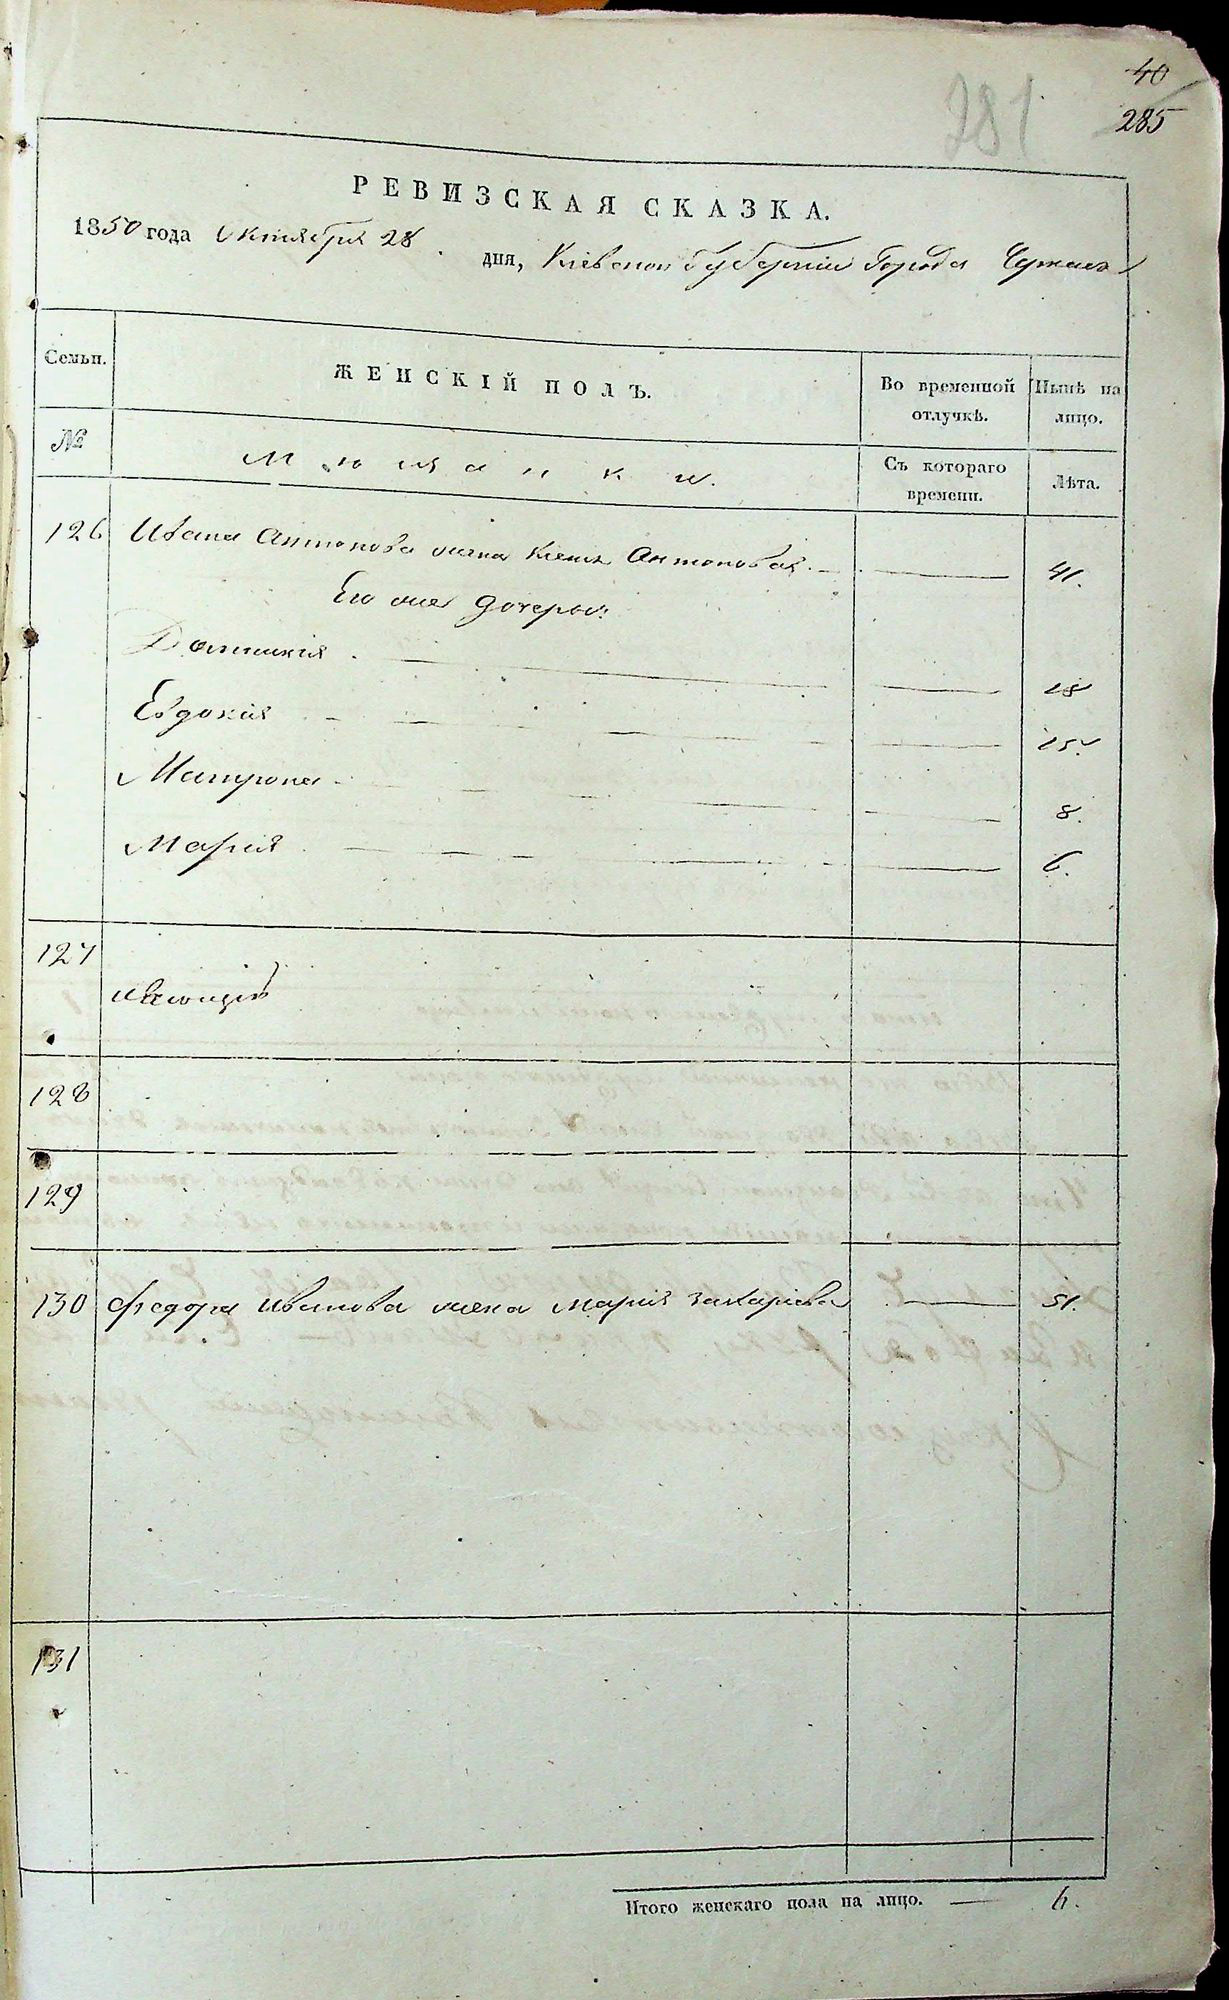 40
285
281
РЕВИЗСКАЯ СКАЗКА.
1850 года Октября 28 дня, Кіевской Губерніи Города Черкасъ
Семьи.
ЖЕНСКІЙ ПОЛЪ.
Во временной отлучкѣ.
Нынѣ на лицо.
№
Мѣщанки.
Съ котораго времени.
Лѣта.
126 Ивана Антонова жена Антоновая 41.
Его же дочеры:
18
Евдокія 15.
Матрона 8.
Марія 6.
127
128
129
130 Федора Иванова жена Марія Захаріева 51.
131
Итого женскаго пола на лицо. 6.